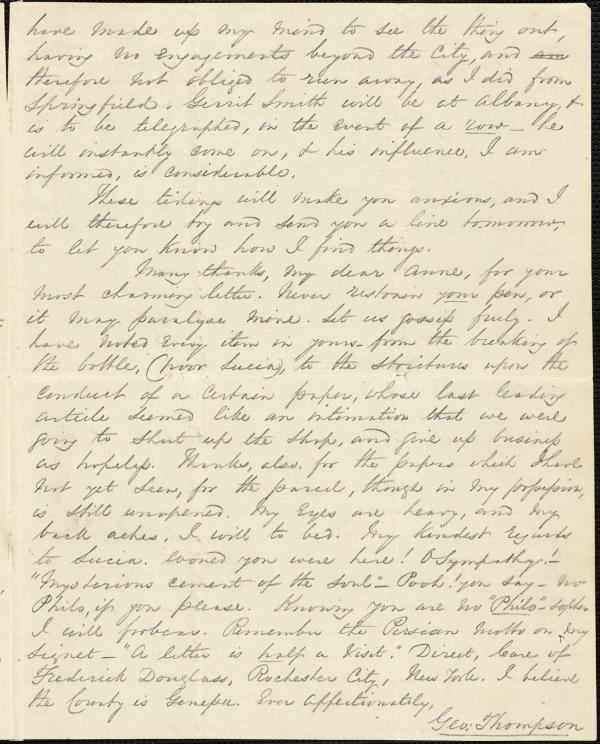 have made up my mind to see the thing out,
having no engagements beyond the City, and am
therefore not obliged to run away, as I did from
Springfield. Gerrit Smith will be at Albany, &
is to be telegraphed, in the event of a row - he
will instantly come on, & his influence, I am
informed, is considerable.
These tidings will make you anxious, and I
will therefore try and send you a line tomorrow,
to let you know how I find things.
Many thanks, my dear Anne, for your
most charming letter. Never restrain your pen, or
it may paralyse mine. Let us gossip freely. I
have noted every item in yours - from the breaking of
the bottle, (poor Lucia), to the strictures upon the
conduct of a certain paper, whose last leading
article seemed like an intimation that we were
going to shut up the shop, and give up business
as hopeless. Thanks, also, for the papers which I have
not yet seen, for the parcel, though in my possession,
is still unopened. My eyes are heavy, and my
back aches. I will to bed. My kindest regards
to Lucia. Would you were here! O Sympathy! -
"Mysterious cement of the soul" - Pooh! you say - no
Philo, if you please. Knowing you are no "Philo"-sopher
I will forbear. Remember the Persian motto on my
signet - "A letter is half a visit." Direct, Care of
Frederick Douglass, Rochester City, New York. I believe
the County is Genesee. Ever affectionately,
Geo: Thompson